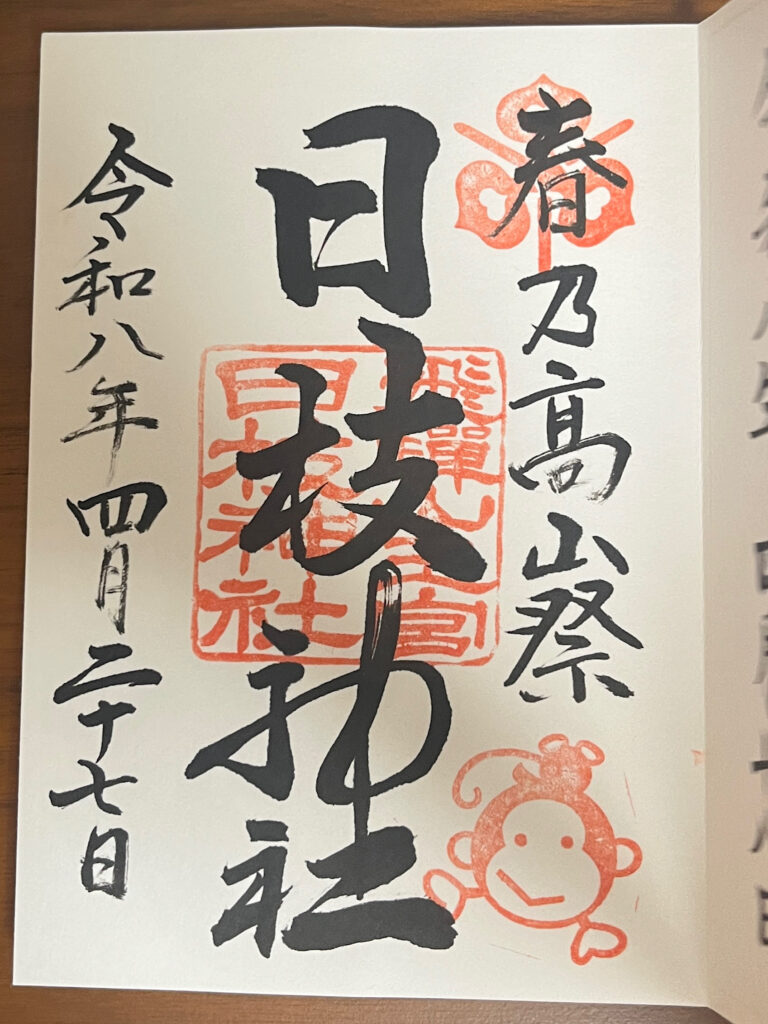 春乃髙山祭
日枝神社
飛騨山王宮
日枝神社
令和八年四月二十七日